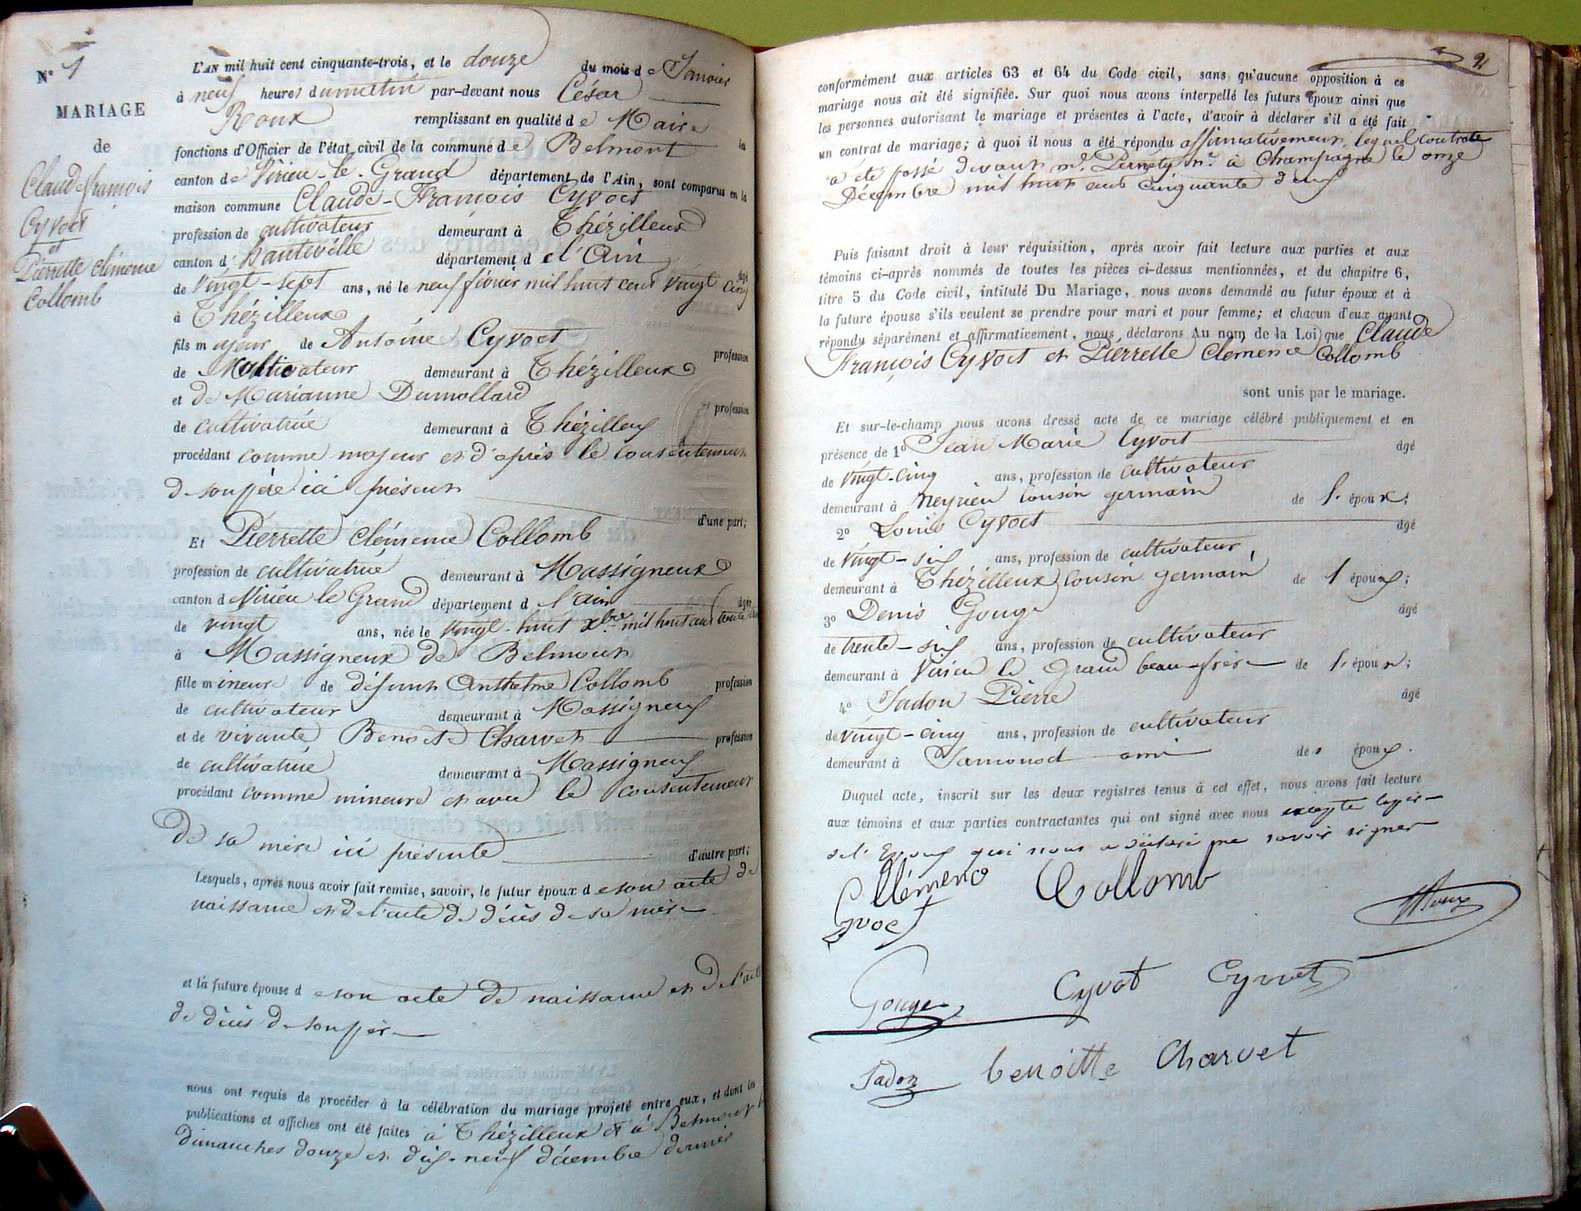 N° 1
MARIAGE
de
Claude françois
Cyvoct
et
Pierrette clémence
Collomb
L'AN mil huit cent cinquante-trois, et le douze du mois de Janvier
à neuf heures du matin par-devant nous César
Roux remplissant en qualité de Maire les
fonctions d'Officier de l'état civil de la commune de Belmont
canton de Virieu-le-Grand département de l'Ain, sont comparus en la
maison commune Claude-François Cyvoct
profession de cultivateur demeurant à Thézilleux
canton d'hauteville département de l'Ain âgé
de vingt-sept ans, né le neuf février mil huit cent vingt cinq
à Thézilleux
fils majeur de Antoine Cyvoct profession
de cultivateur demeurant à Thézilleux
et de Marianne Dumollard profession
de cultivatrice demeurant à Thézilleux
procédant comme majeur et d'après le consentement
de son père ici présent
d'une part;
Et Pierrette Clémence Collomb
profession de cultivatrice demeurant à Massigneux
canton de Virieu le Grand département de l'ain âgée
de vingt ans, née le vingt-huit xbre mil huit cent trente
à Massigneux de Belmont
fille mineure de défunt Anthelme Collomb profession
de cultivateur demeurant à Massigneux
et de vivante Benoite Charvet profession
de cultivatrice demeurant à Massigneux
procédant comme mineure et avec le consentement
de sa mère ici présente d'autre part;
Lesquels, après nous avoir fait remise, savoir, le futur époux de son acte de
naissance et de l'acte de décès de sa mère
et la future épouse de son acte de naissance et de l'acte
de décès de son père
nous ont requis de procéder à la célébration du mariage projeté entre eux, et dont les
publications et affiches ont été faites à Thézilleux et à Belmont les
dimanches douze et dix-neuf décembre dernier
2
conformément aux articles 63 et 64 du Code civil, sans qu'aucune opposition à ce
mariage nous ait été signifiée. Sur quoi nous avons interpellé les futurs époux ainsi que
les personnes autorisant le mariage et présentes à l'acte, d'avoir à déclarer s'il a été fait
un contrat de mariage; à quoi il nous a été répondu affirmativement, lequel contrat
a été passé devant me. Pernéty nre. à Champagne le onze
Décembre mil huit cent cinquante deux
Puis faisant droit à leur réquisition, après avoir fait lecture aux parties et aux
témoins ci-après nommés de toutes les pièces ci-dessus mentionnées, et du chapitre 6,
titre 5 du Code civil, intitulé Du Mariage, nous avons demandé au futur époux et à
la future épouse s'ils veulent se prendre pour mari et pour femme; et chacun d'eux ayant
répondu séparément et affirmativement, nous déclarons Au nom de la Loi que Claude
François Cyvoct et Pierrette Clémence Collomb
sont unis par le mariage.
Et sur-le-champ nous avons dressé acte de ce mariage célébré publiquement et en
présence de 1° Jean Marie Cyvoct âgé
de vingt-cinq ans, profession de cultivateur
demeurant à Neyrieu cousin germain de l'époux;
2° Louis Cyvoct âgé
de vingt-six ans, profession de cultivateur
demeurant à Thézilleux cousin germain de l'époux;
3° Denis Gouge âgé
de trente-six ans, profession de cultivateur
demeurant à Virieu le Grand beau-frère de l'époux;
4° Jadon Pierre âgé
de vingt-cinq ans, profession de cultivateur
demeurant à Samonod ami des époux.
Duquel acte, inscrit sur les deux registres tenus à cet effet, nous avons fait lecture
aux témoins et aux parties contractantes qui ont signé avec nous excepté le père
de l'Epoux qui nous a déclaré ne savoir signer
Clémence Collomb
Cyvoct
Roux
Gouge Cyvot Cyvoct
Jadon benoitte Charvet